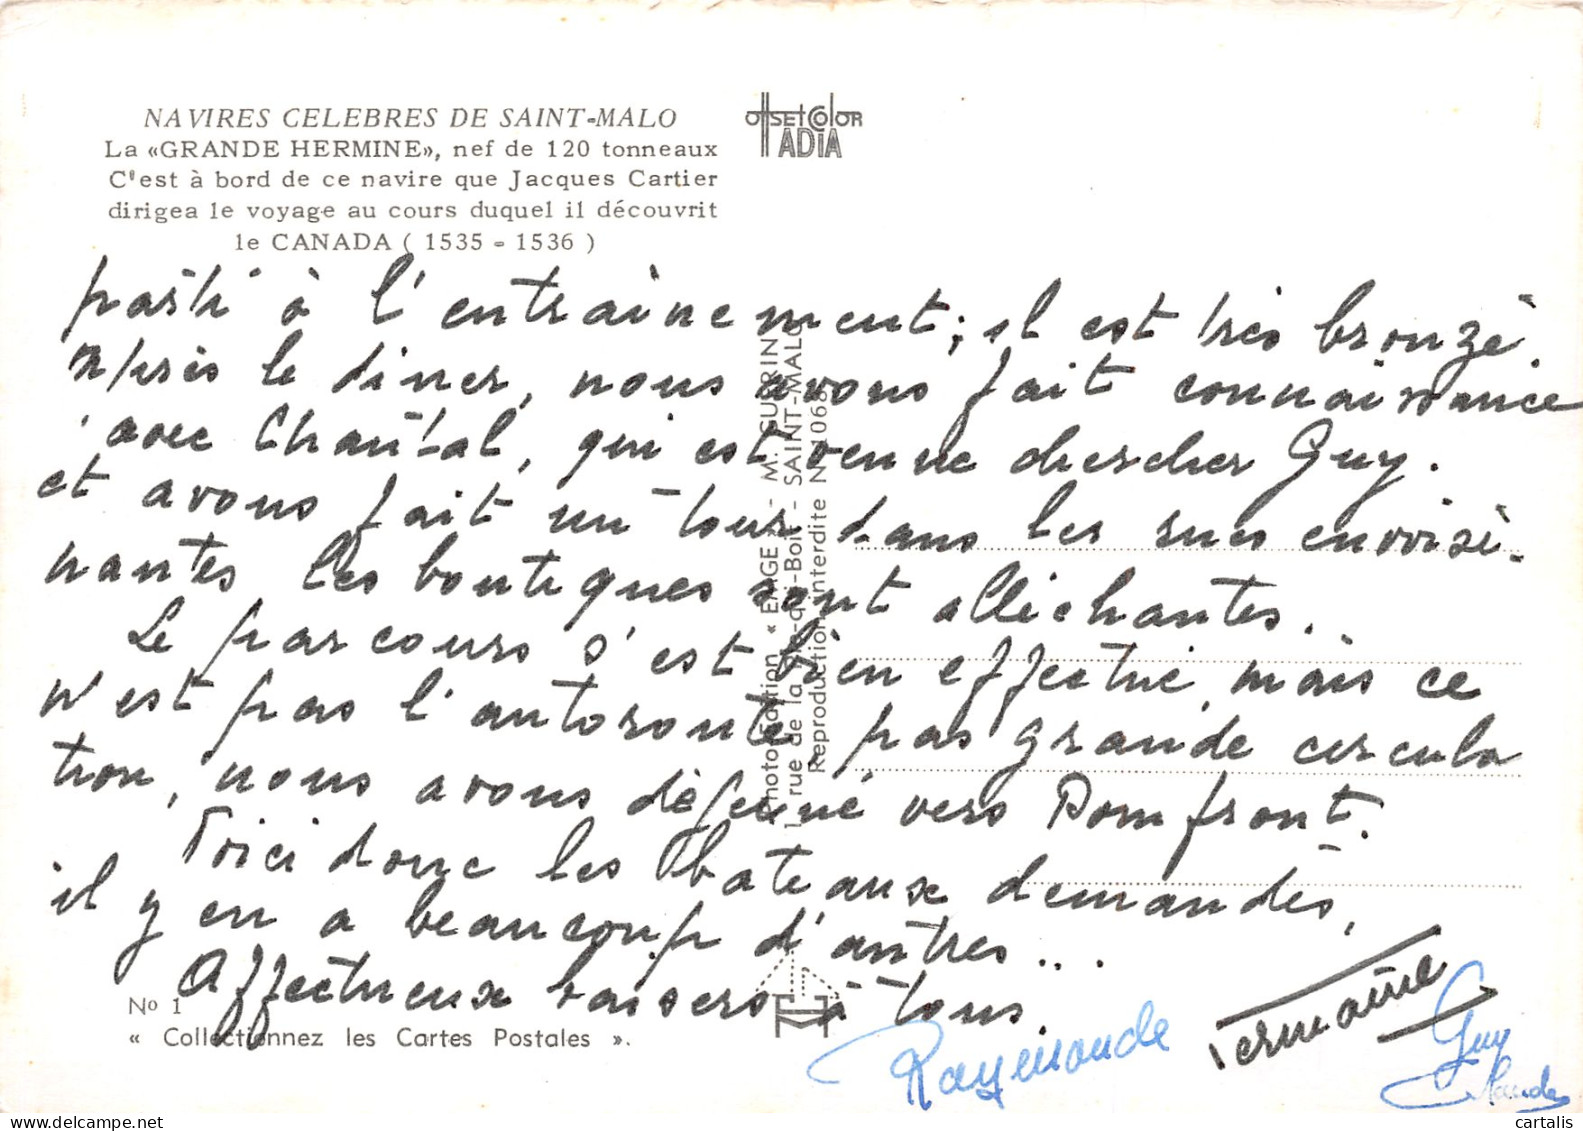 NAVIRES CELEBRES DE SAINT-MALO
La «GRANDE HERMINE», nef de 120 tonneaux
C'est à bord de ce navire que Jacques Cartier
dirigea le voyage au cours duquel il découvrit
le CANADA ( 1535 - 1536 )
OffSEt COlOR
ADIA
parti à l'entrainement; il est très bronzé.
Après le diner, nous avons fait connaissance
avec Chantal, qui est venue chercher Guy.
et avons fait un tour dans les rues environ-
nantes les boutiques sont alléchantes..
Le parcours s'est bien effectué, mais ce
n'est pas l'autoroute, pas grande circula
tion, nous avons déjeuné vers Domfront.
Voici donc les bateaux demandés,
il y en a beaucoup d'autres...
Affectueux baisers à tous.
Raymonde
Germaine
Guy
Claude
Photo Edition « EMGE » - M. GUERIN
1, rue de la Pie-qui-Boit - SAINT-MALO
Reproduction interdite N° 1068
No 1
« Collectionnez les Cartes Postales ».
cartalis